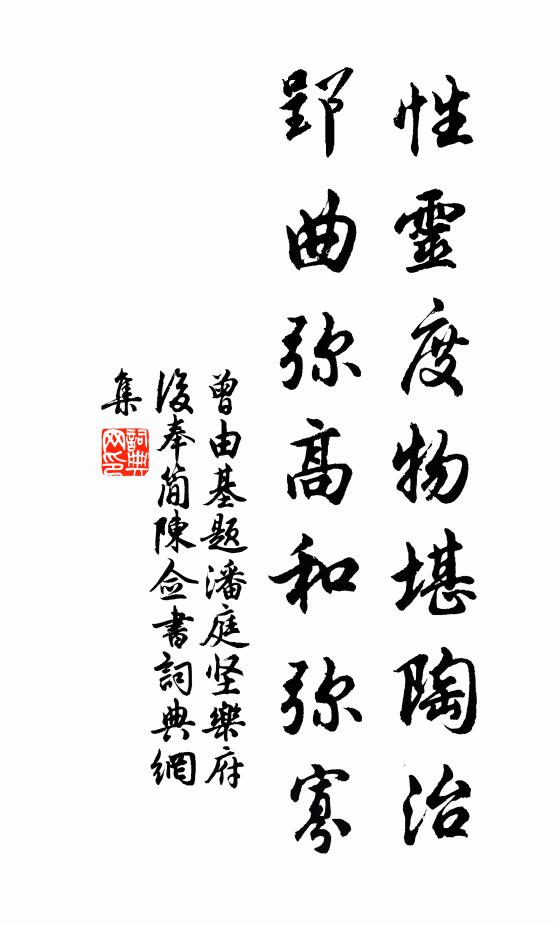 性靈度物堪陶冶
郢曲弥高和弥寡
曾由基題潘庭坚樂府
後奉简陳佥書詞典網
集
詞典
网印